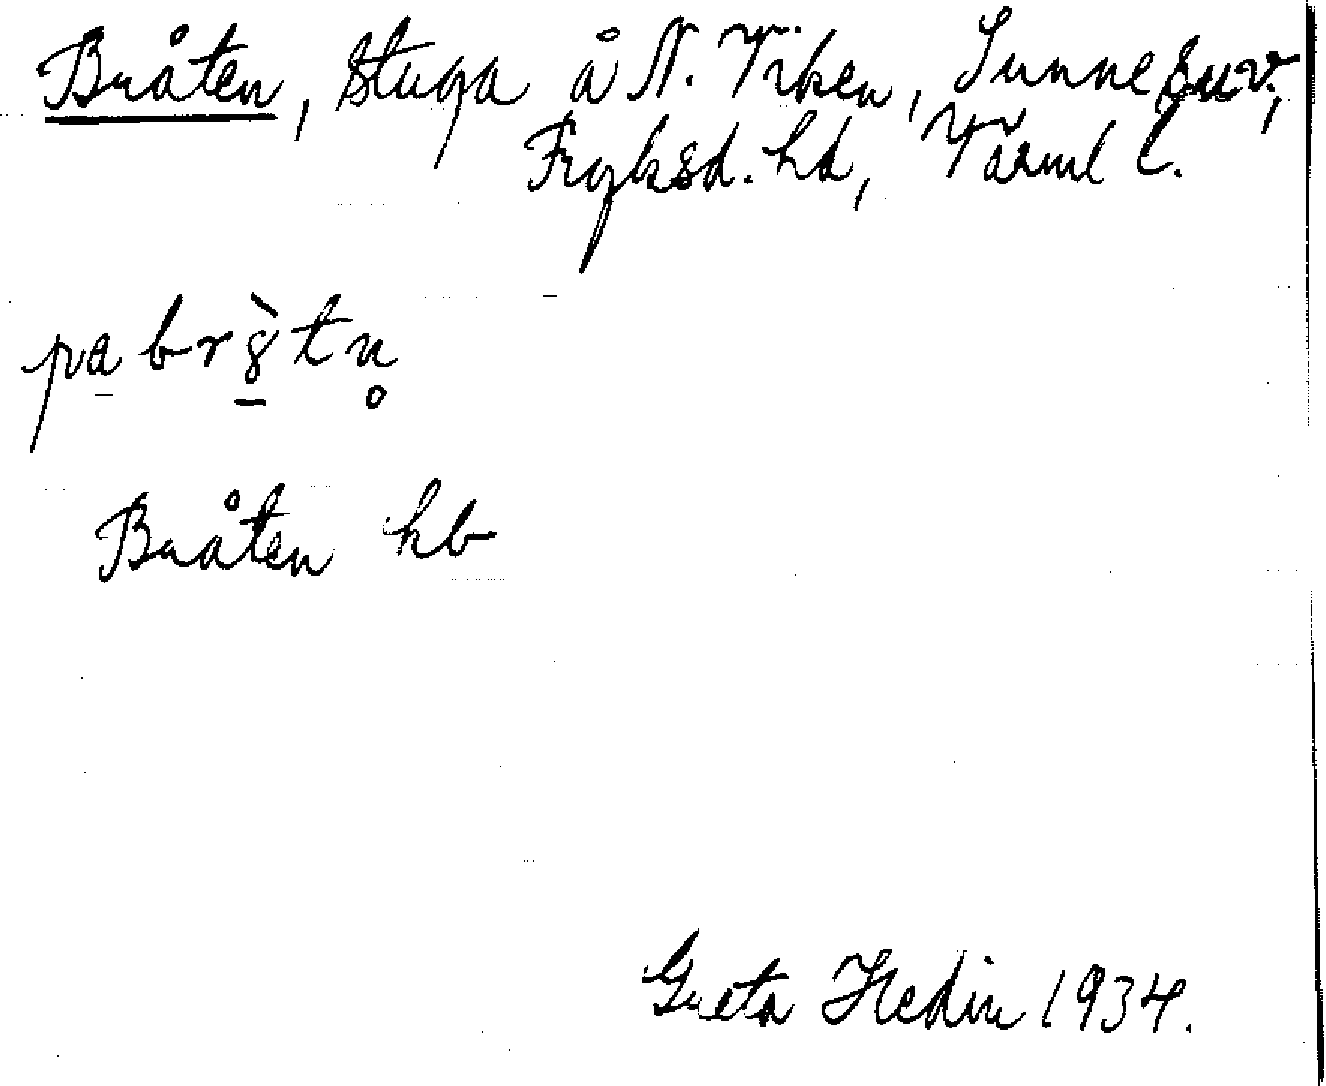 Bråten, stuga å N. Viken, Sunne
Fryksd. hd, Värml l.
Bråten hb
Greta Hedin 1934.